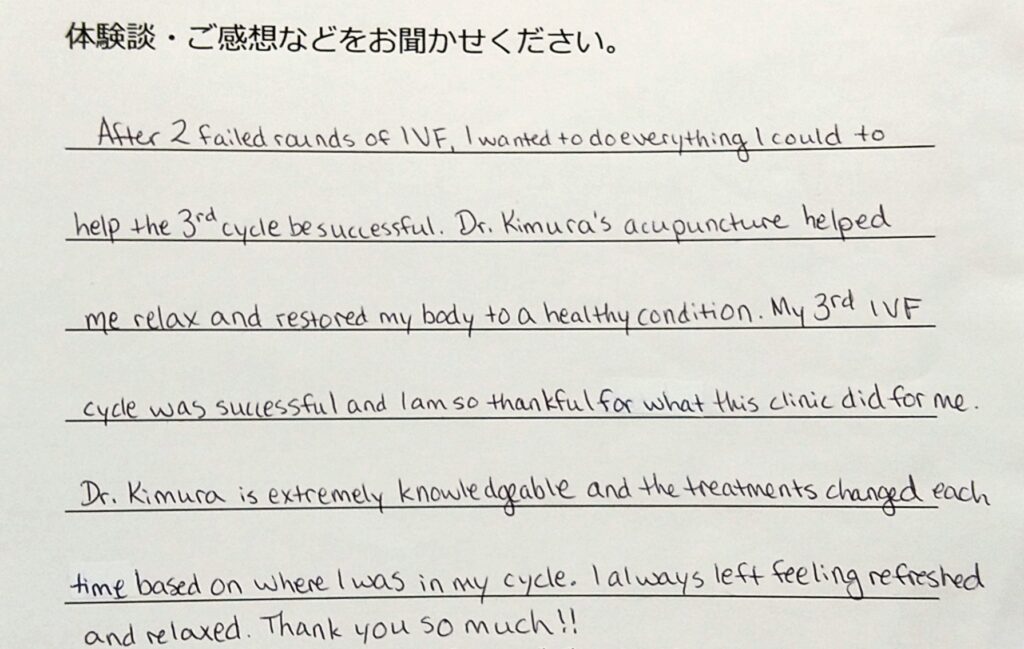 体験談・ご感想などをお聞かせください。
After 2 failed rounds of IVF, I wanted to do everything I could to
help the 3rd cycle be successful. Dr. Kimura's acupuncture helped
me relax and restored my body to a healthy condition. My 3rd IVF
cycle was successful and I am so thankful for what this clinic did for me.
Dr. Kimura is extremely knowledgeable and the treatments changed each
time based on where I was in my cycle. I always left feeling refreshed
and relaxed. Thank you so much!!